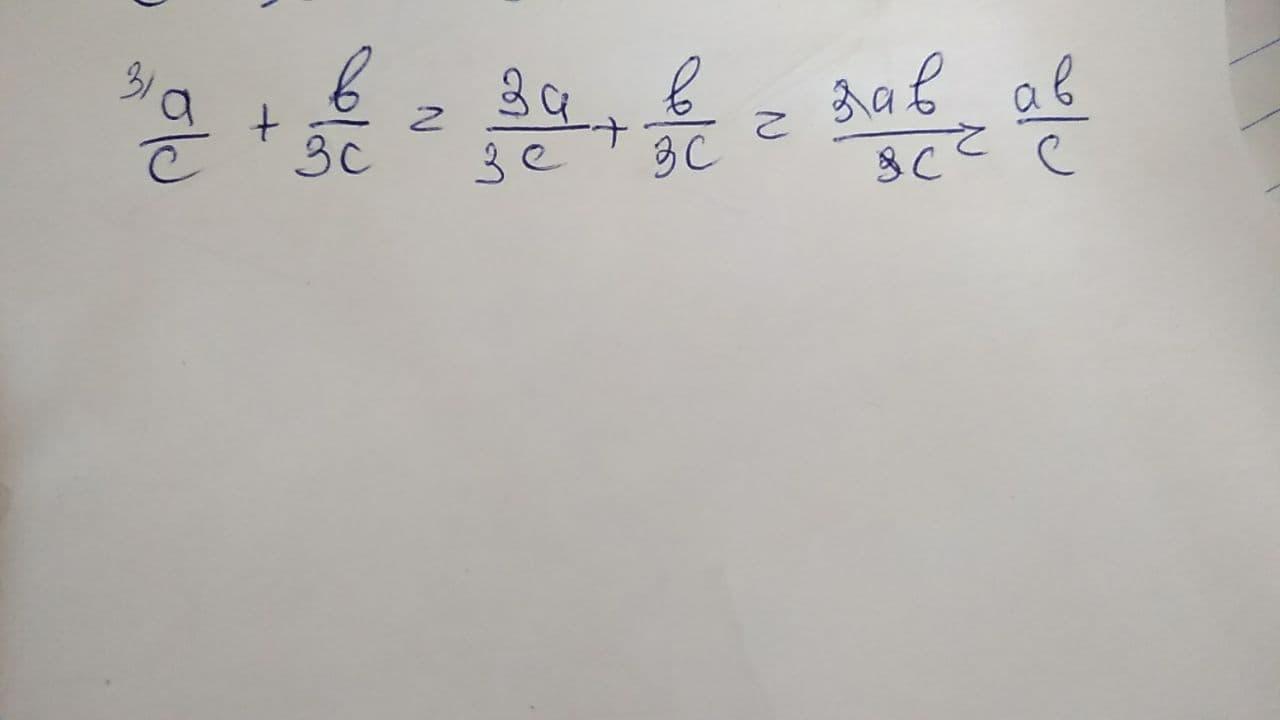 3/ a/c + b/3c = 3a/3c + b/3c = 3ab/3c = ab/c